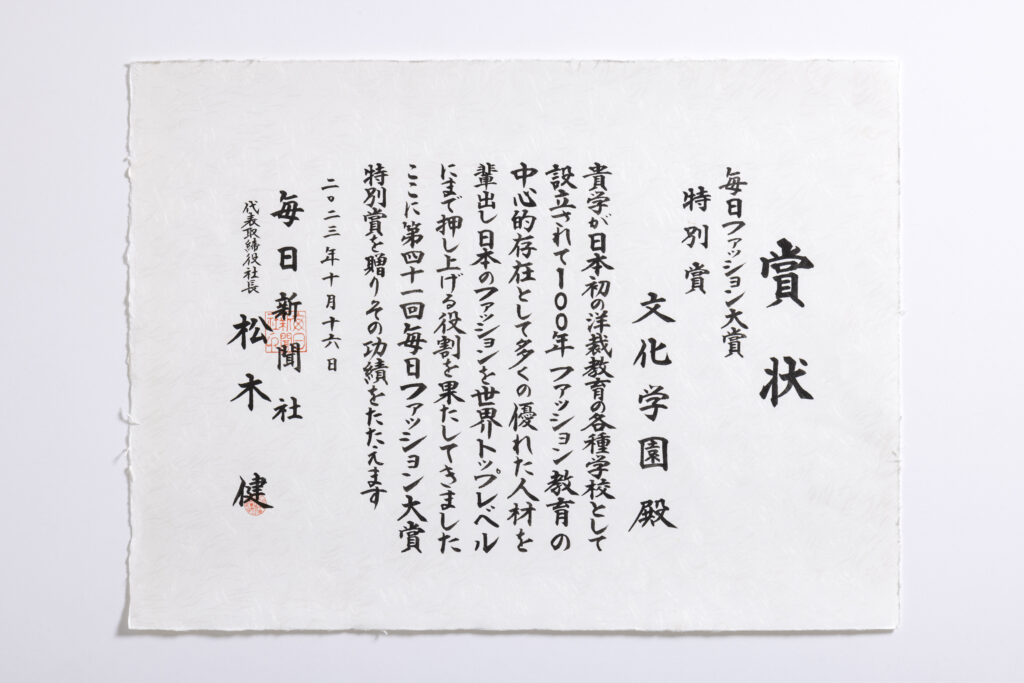 賞状
毎日ファッション大賞
特別賞
文化学園殿
貴学が日本初の洋裁教育の各種学校として
設立されて100年ファッション教育の
中心的存在として多くの優れた人材を
輩出し日本のファッションを世界トップレベル
にまで押し上げる役割を果たしてきました
ここに第四十一回毎日ファッション大賞
特別賞を贈りその功績をたたえます
二〇二三年十月十六日
毎日新聞社
代表取締役社長
松木健